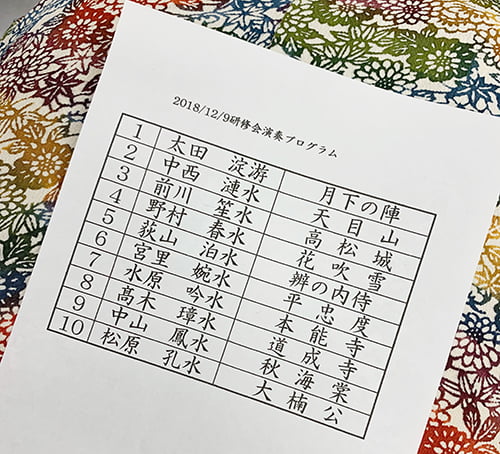 2018/12/9研修会演奏プログラム
1 太田 淀游 月下の陣
2 中西 漣水 天目山
3 前川 笙水 高松城
4 野村 春水 花吹雪
5 荻山 泊水 辨の内侍
6 宮里 婉水 平忠度
7 水原 吟水 本能寺
8 高木 璋水 道成寺
9 中山 鳳水 秋海棠
10 松原 孔水 大楠公